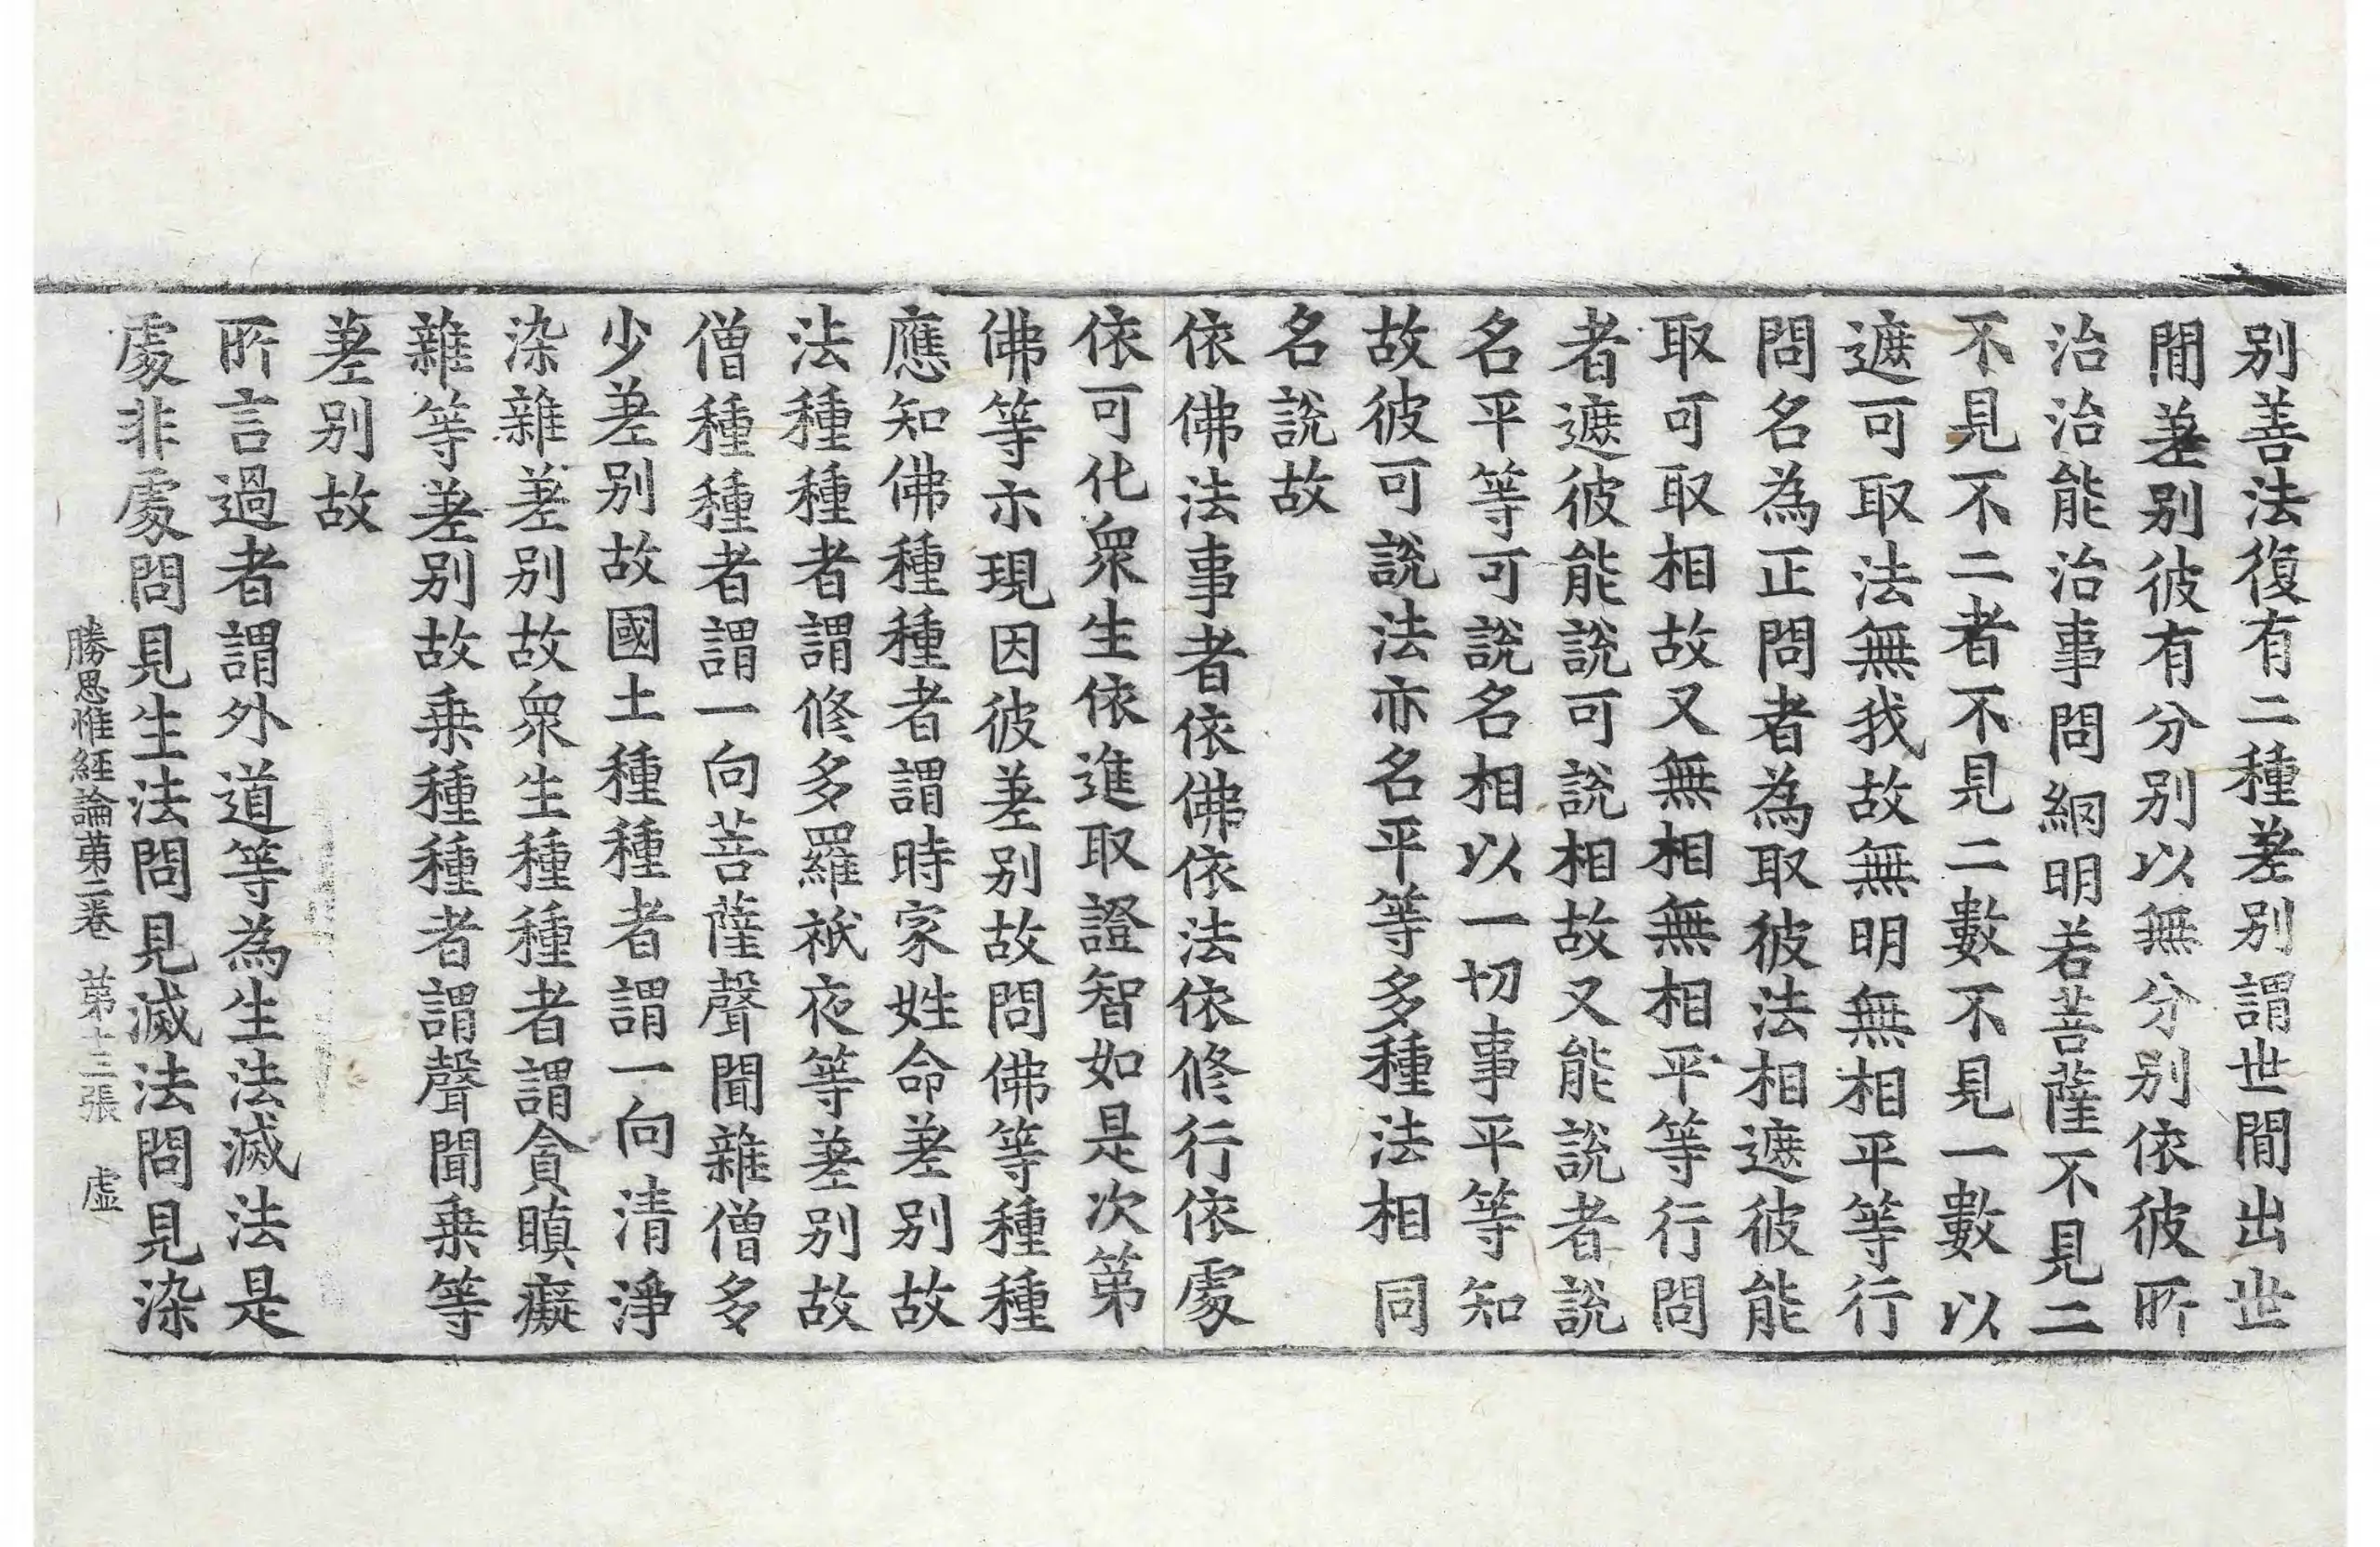 别善法復有二種差别謂世間出世
間差别彼有分别以無分别依彼所
治治能治事問網明若菩薩不見二
不見不二者不見二數不見一數以
遮可取法無我故無明無相平等行
問名為正問者為取彼法相遮彼能
取可取相故又無相無相平等行問
者遮彼能說可說相故又能說者說
名平等可說名相以一切事平等知
故彼可說法亦名平等多種法相同
名說故
依佛法事者依佛依法依修行依處
依可化衆生依進取證智如是次第
佛等示現因彼差别故問佛等種種
應知佛種種者謂時家姓命差别故
法種種者謂修多羅祇夜等差别故
僧種種者謂一向菩薩聲聞雜僧多
少差别故國土種種者謂一向清淨
染雜差别故衆生種種者謂貪瞋癡
雜等差别故乗種種者謂聲聞乗等
差别故
所言過者謂外道等為生法滅法是
處非處問見生法問見滅法問見染
勝思惟經論第二卷 第十三張 虛